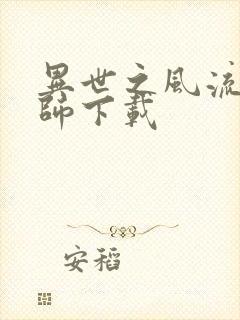 異世之風流
師下載
安稻